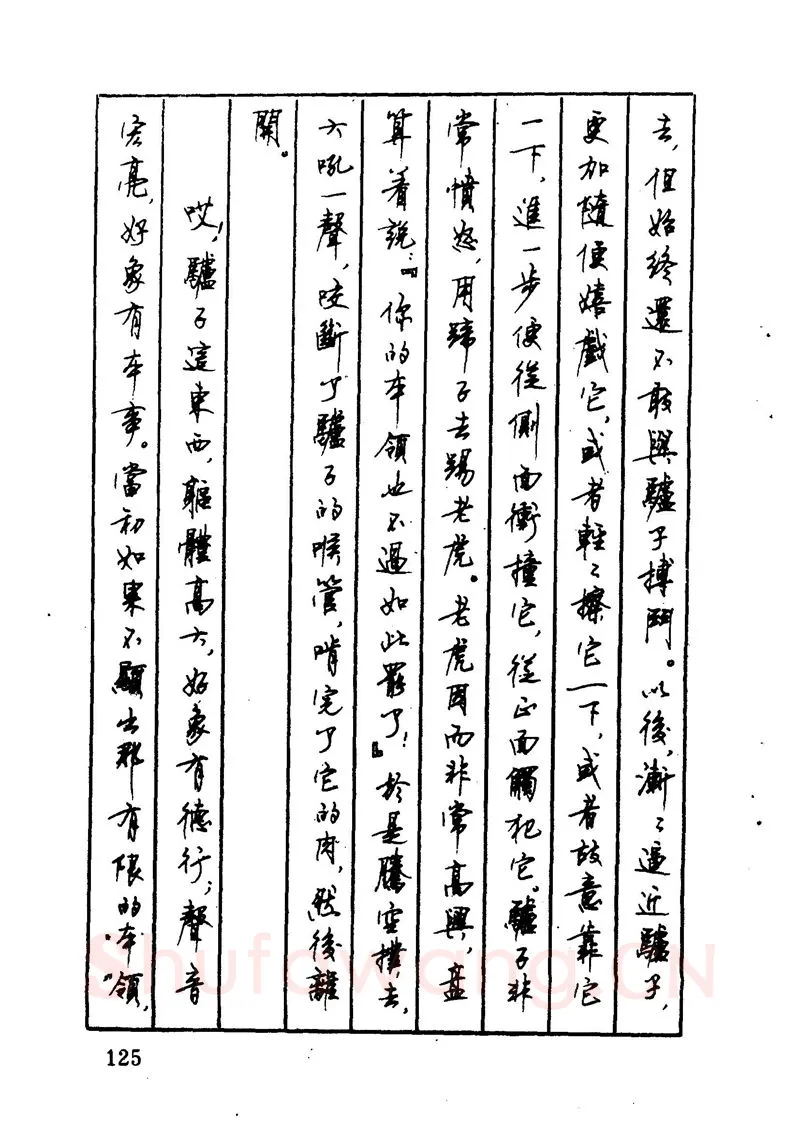 去，但始終還不敢與驢子搏鬥。以後，漸漸逼近驢子，
更加隨便嬉戲它，或者輕輕擦它一下，或者故意靠它
一下，進一步便從側面衝撞它，從正面觸犯它。驢子非
常憤怒，用蹄子去踢老虎。老虎因而非常高興，盘
算着説：『你的本領也不過如此罷了！』於是騰空撲去，
大吼一聲，咬斷了驢子的喉管，啃完了它的肉，然後離
開。
哎！驢子這東西，軀體高大，好象有德行；聲音
宏亮，好象有本事。當初如果不顯出那有限的本領，
125
Shufawang.CN